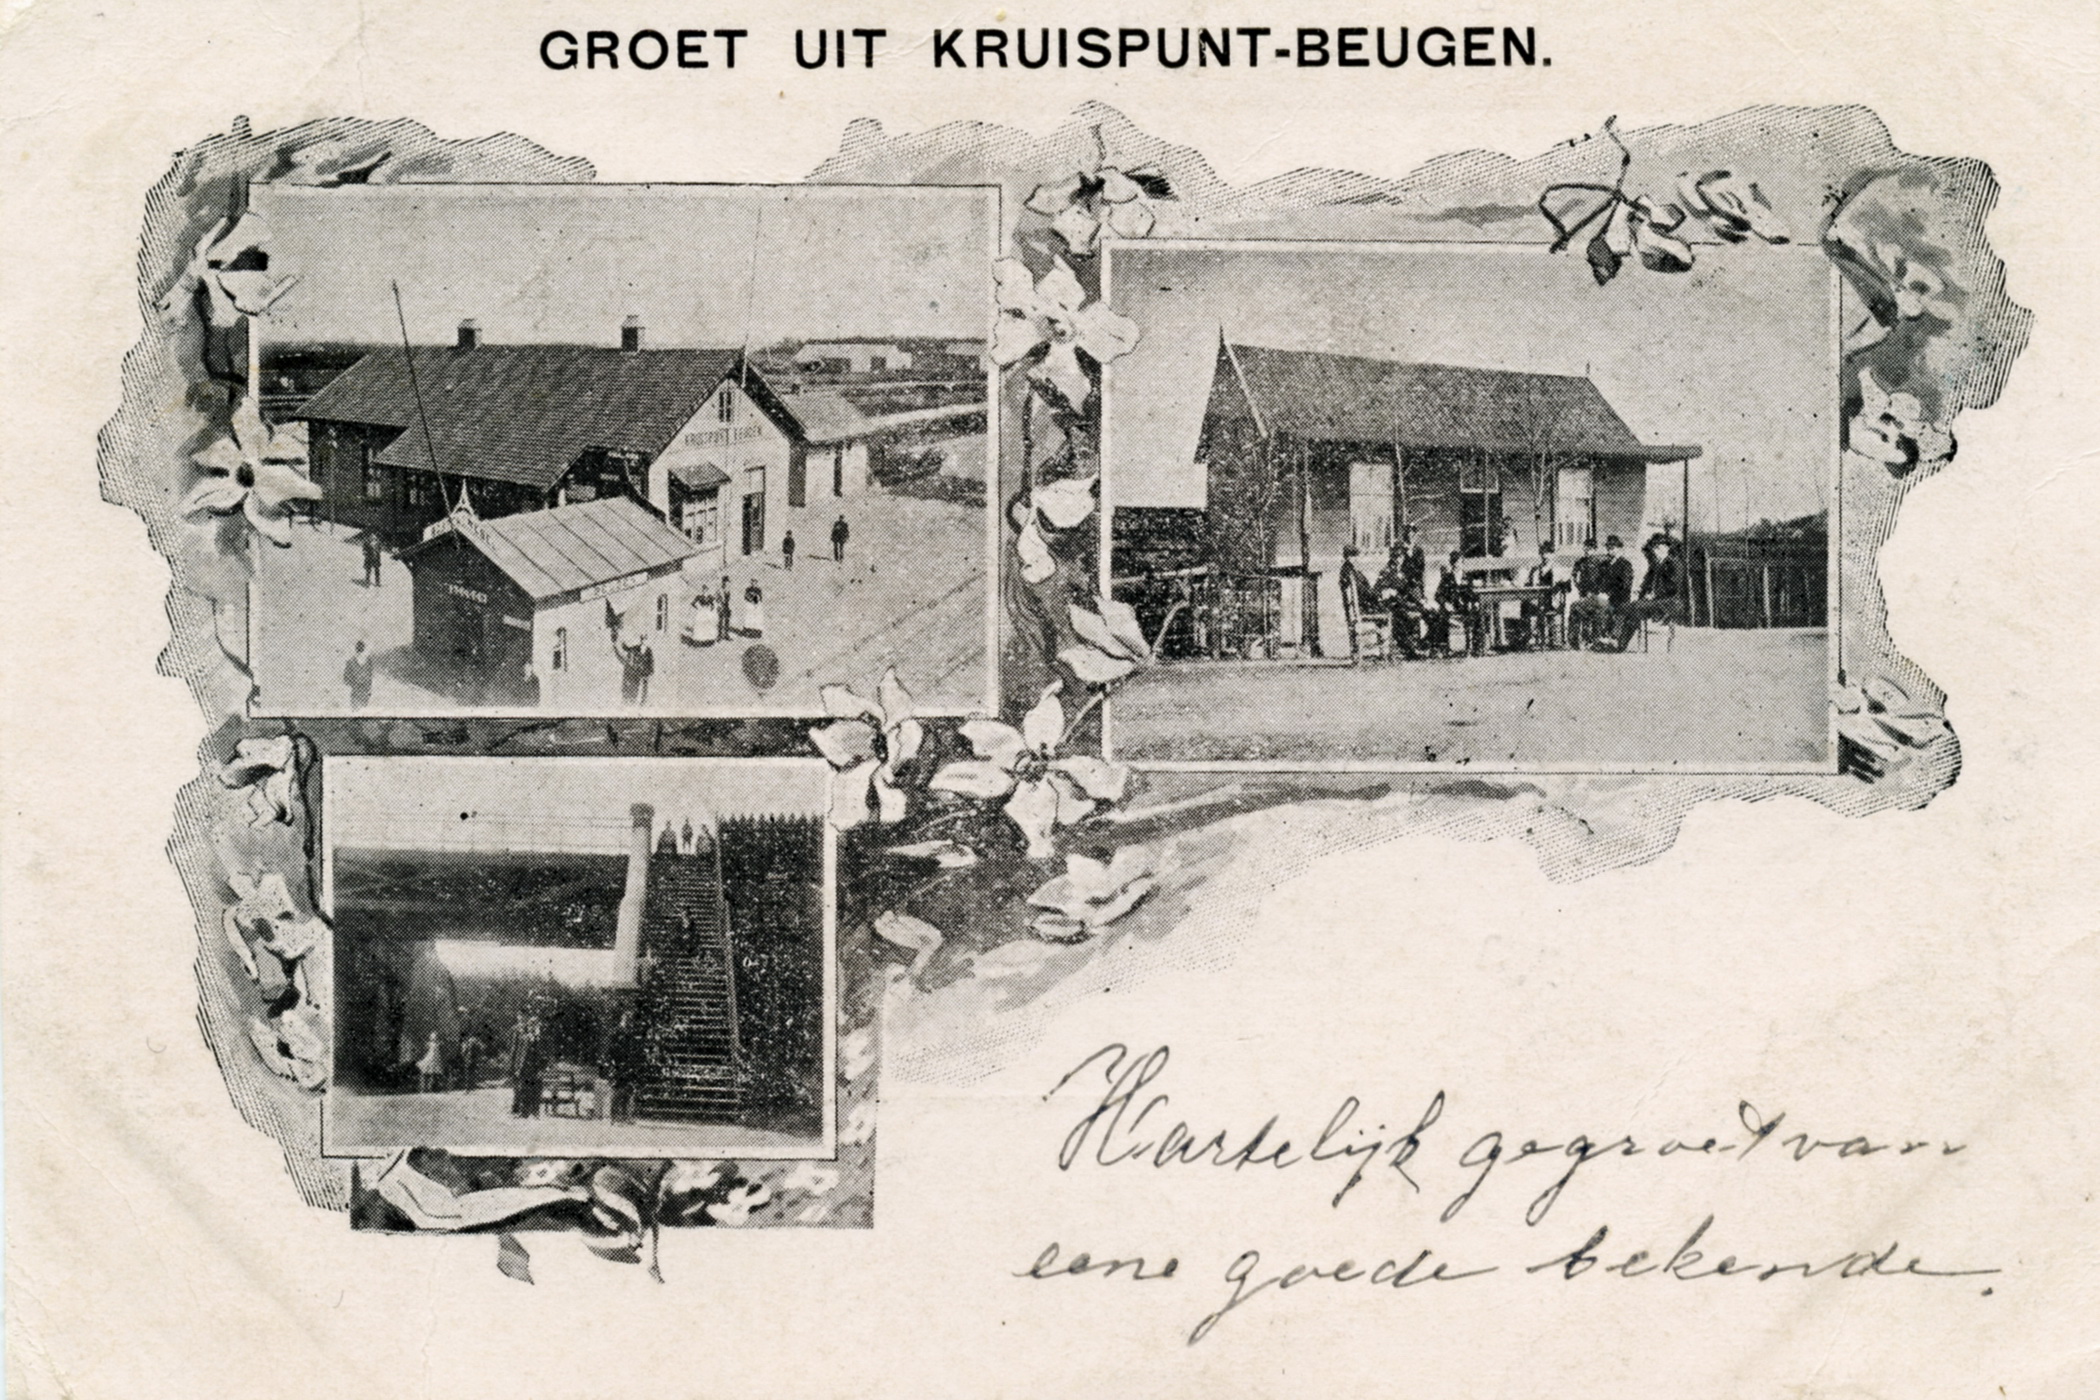 GROET UIT KRUISPUNT-BEUGEN.
KRUISPUNT BEUGEN
Hartelijk gegroet van
eene goede bekende.